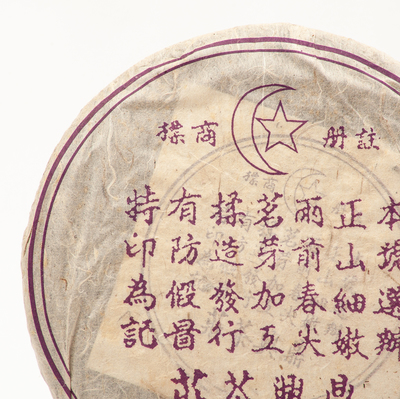 註册 商標
本號選辦
正山細嫩
雨前春尖
茗芽加五
揉造發行
有防假冒
特印為記
鼎興茶莊